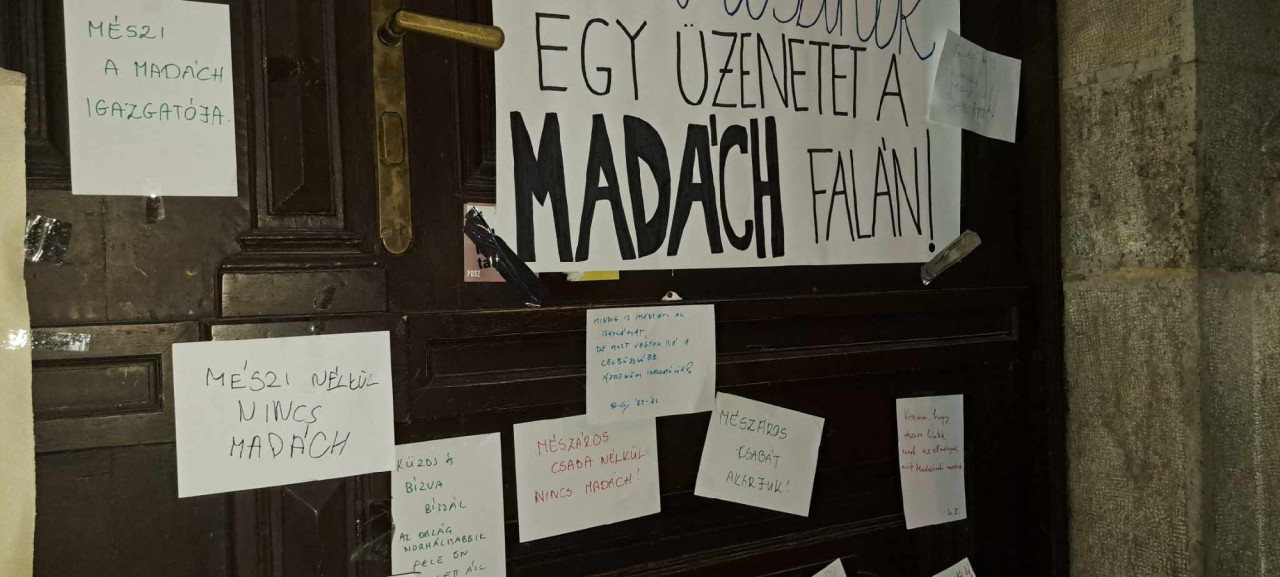 MÉSZI
A MADÁCH
IGAZGATÓJA.
EGY ÜZENETET A
MADÁCH FALÁN!
POSZ
MÉSZI NÉLKÜL
NINCS
MADÁCH
MINDIG IS IMÁDTAM AZ
ISKOLÁMAT,
DE MOST VAGYOK RÁ A
LEGBÜSZKÉBB
KÜZDJ &
BÍZVA
BÍZZÁL
AZ ORSZÁG
NORMÁLISABBIK
FELE ÖN
ÁLL
MÉSZÁROS
CSABA NÉLKÜL
NINCS MADÁCH!
MÉSZÁROS
CSABÁT
AKARJUK!
hogy